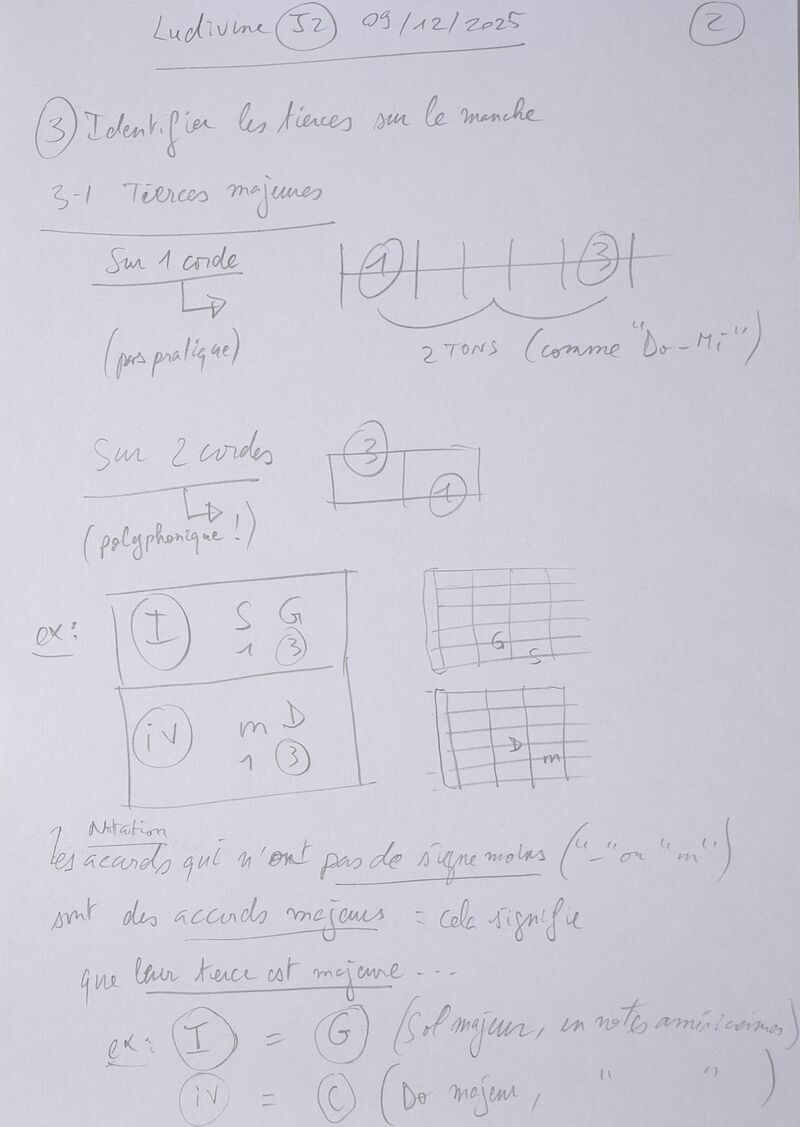 Ludivine J2 09/12/2025
2
3 Identifier les tierces sur le manche
3-1 Tierces majeures
Sur 1 corde
1 3
(pas pratique)
2 TONS (comme "Do-Mi")
Sur 2 cordes
3
1
(polyphonique !)
ex:
I S G
1 3
G
S
iV m D
1 3
D
m
Notation
les accords qui n'ont pas de signe moins ("-" ou "m")
sont des accords majeurs = cela signifie
que leur tierce est majeure ...
ex: I = G (Sol majeur, en notes américaines)
iV = C (Do majeur, " ")